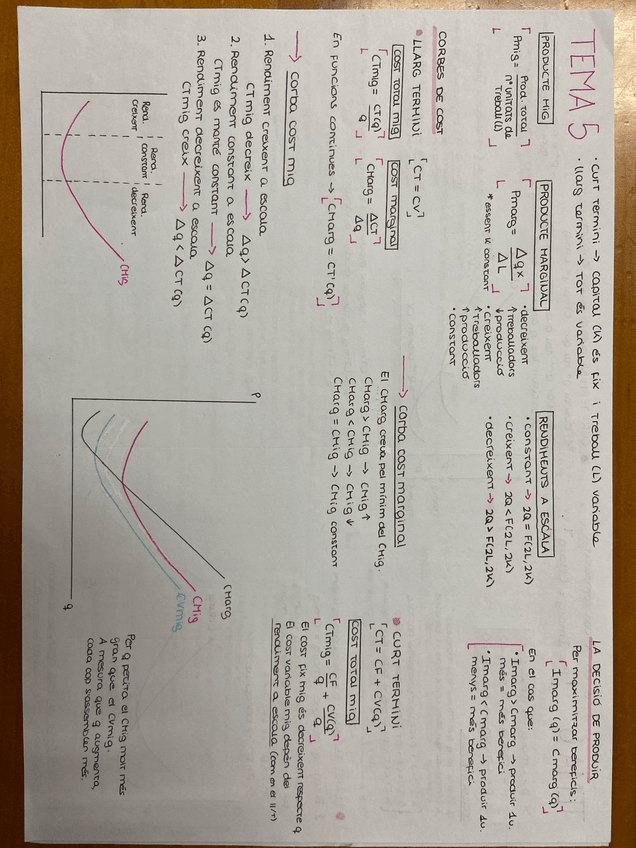 TEMA 5
· Curt termini → capital (K) és fix i treball (L) variable
· llarg termini → tot és variable
PRODUCTE MIG
Pmig = Prod. total / nº unitats de treball (L)
PRODUCTE MARGINAL
Pmarg = Δqx / ΔL
* essent K constant
· decreixent
↑ treballadors
↓ producció
· creixent
↑ treballadors
↑ producció
· constant
RENDIMENTS A ESCALA
· constant → 2Q = F(2L, 2K)
· creixent → 2Q < F(2L, 2K)
· decreixent → 2Q > F(2L, 2K)
LA DECISIÓ DE PRODUIR
Per maximitzar beneficis:
Imarg (q) = Cmarg (q)
En el cas que:
· Imarg > Cmarg → produir 1u.
més = més benefici
· Imarg < Cmarg → produir 1u.
menys = més benefici
CORBES DE COST
LLARG TERMINI
CT = CV
COST TOTAL MIG
CTmig = CT(q) / q
COST MARGINAL
CMarg = ΔCT / Δq
En funcions contínues → CMarg = CT'(q)
→ corba cost mig
1. Rendiment creixent a escala
CTmig decreix → Δq > ΔCT(q)
2. Rendiment constant a escala
CTmig es manté constant → Δq = ΔCT(q)
3. Rendiment decreixent a escala
CTmig creix → Δq < ΔCT(q)
Rend. creixent
Rend. constant
Rend. decreixent
CMig
→ corba cost marginal
El CMarg creua pel mínim del CMig.
CMarg > CMig → CMig ↑
CMarg < CMig → CMig ↓
CMarg = CMig → CMig constant
P
CMarg
CMig
CVmig
q
CURT TERMINI
CT = CF + CV(q)
COST TOTAL MIG
CTmig = CF / q + CV(q) / q
El cost fix mig és decreixent respecte q
El cost variable mig depèn del
rendiment a escala (com en el ll/t)
Per q petita el CMig molt més
gran que el CVmig.
A mesura que q augmenta,
cada cop s'assemblen més.